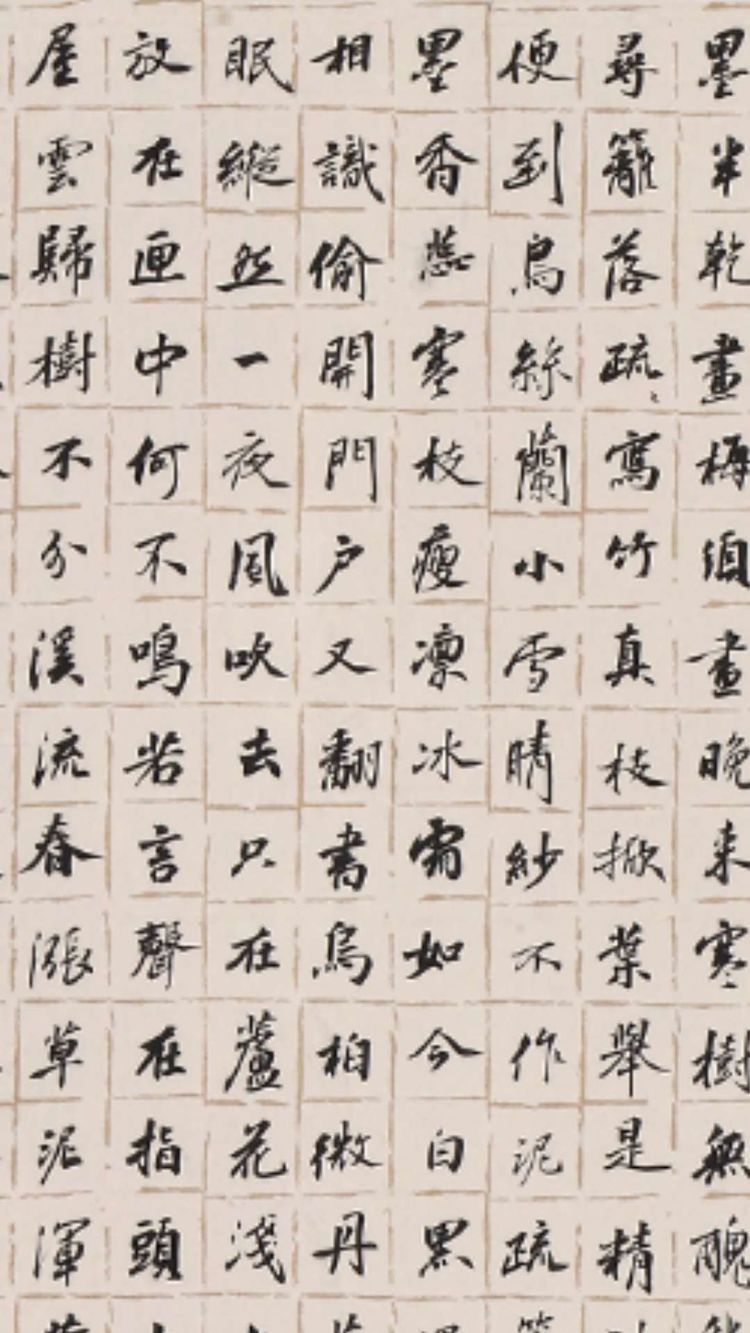 墨半乾畫梅須畫晚來寒樹無醜
尋籬落疏寫竹真枝掀葉舉是精
便到烏絲蘭小雪晴紗不作泥疏
墨香蕊寒枝瘦凜冰霜如今白黑
相識偷開門戶又翻書烏桕微丹
眠縱然一夜風吹去只在蘆花淺
放在匣中何不鳴若言聲在指頭
屋雲歸樹不分溪流春漲草泥渾